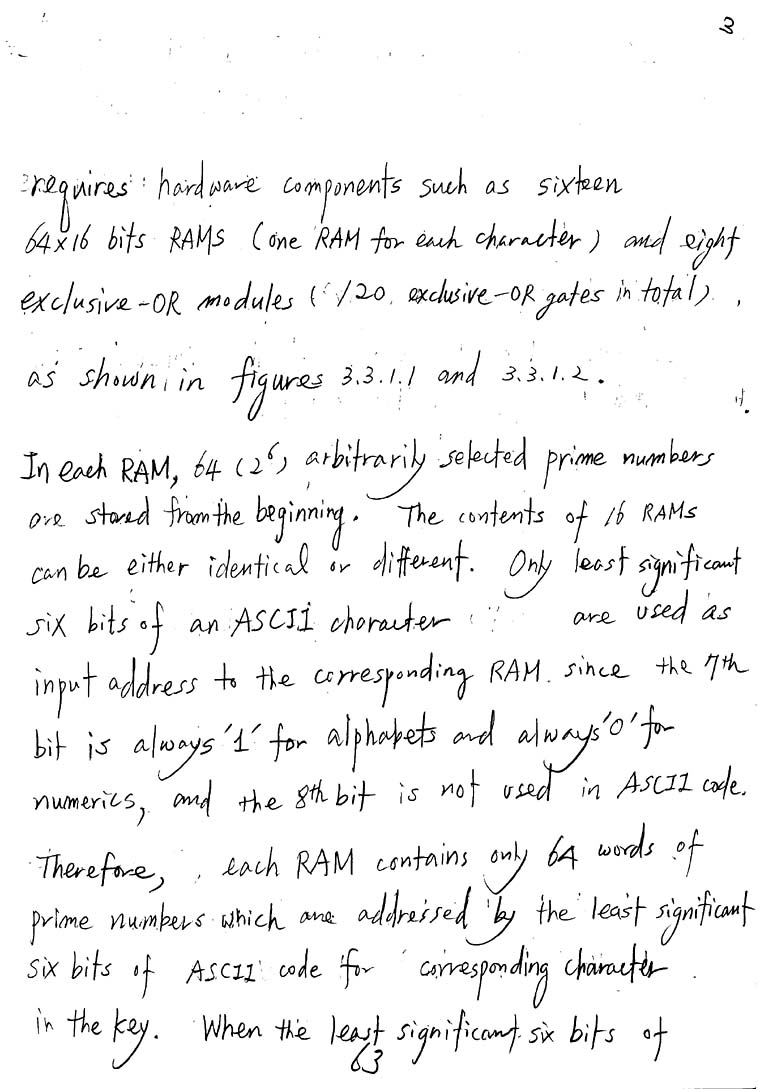 3
requires hardware components such as sixteen
64x16 bits RAMS (one RAM for each character) and eight
exclusive-OR modules (120 exclusive-OR gates in total),
as shown in figures 3.3.1.1 and 3.3.1.2.
In each RAM, 64 (2⁶) arbitrarily selected prime numbers
are stored from the beginning. The contents of 16 RAMs
can be either identical or different. Only least significant
six bits of an ASCII character are used as
input address to the corresponding RAM. since the 7th
bit is always '1' for alphabets and always '0' for
numerics, and the 8th bit is not used in ASCII code.
Therefore, each RAM contains only 64 words of
prime numbers which are addressed by the least significant
six bits of ASCII code for corresponding character
in the key. When the least significant six bits of
63